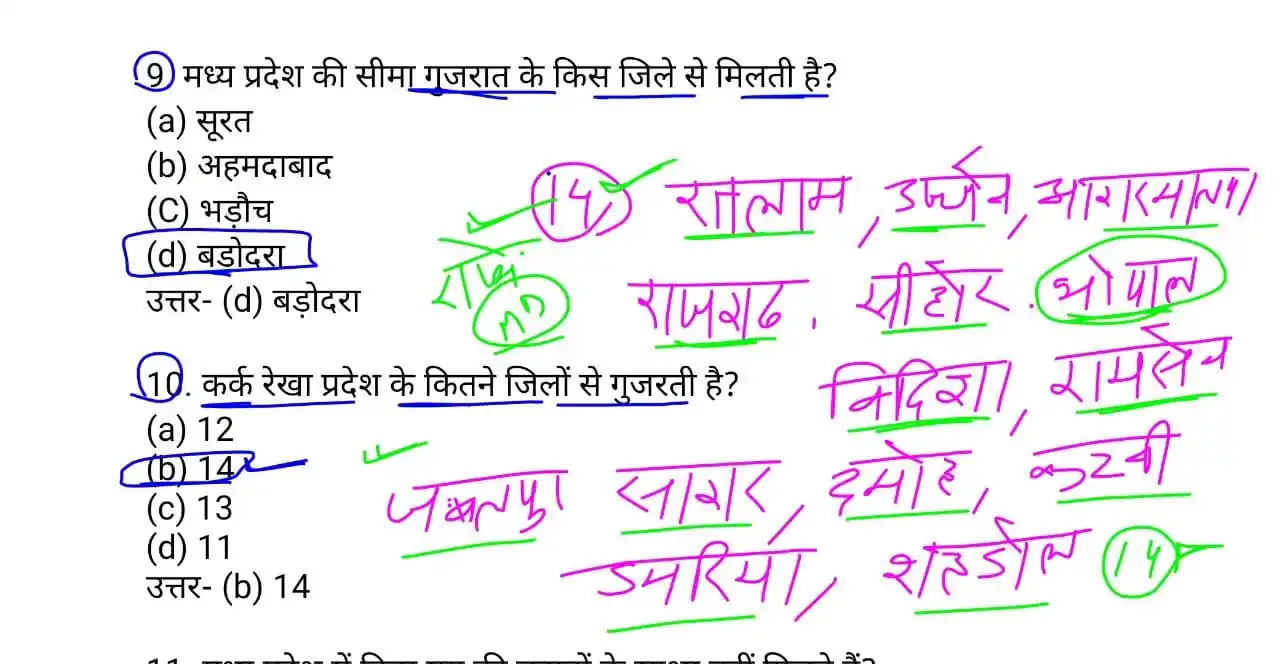 9) मध्य प्रदेश की सीमा गुजरात के किस जिले से मिलती है?
(a) सूरत
(b) अहमदाबाद
(C) भड़ौच
(d) बडोदरा
उत्तर- (d) बड़ोदरा
14 रतलाम, उज्जैन, आगरमालवा
राज.
राजगढ, सीहोर. भोपाल
विदिशा, रायसेन
10. कर्क रेखा प्रदेश के कितने जिलों से गुजरती है?
(a) 12
(b) 14
(c) 13
(d) 11
उत्तर- (b) 14
जबलपुर सागर, दमोह, कटनी
उमरिया, शहडोल 14